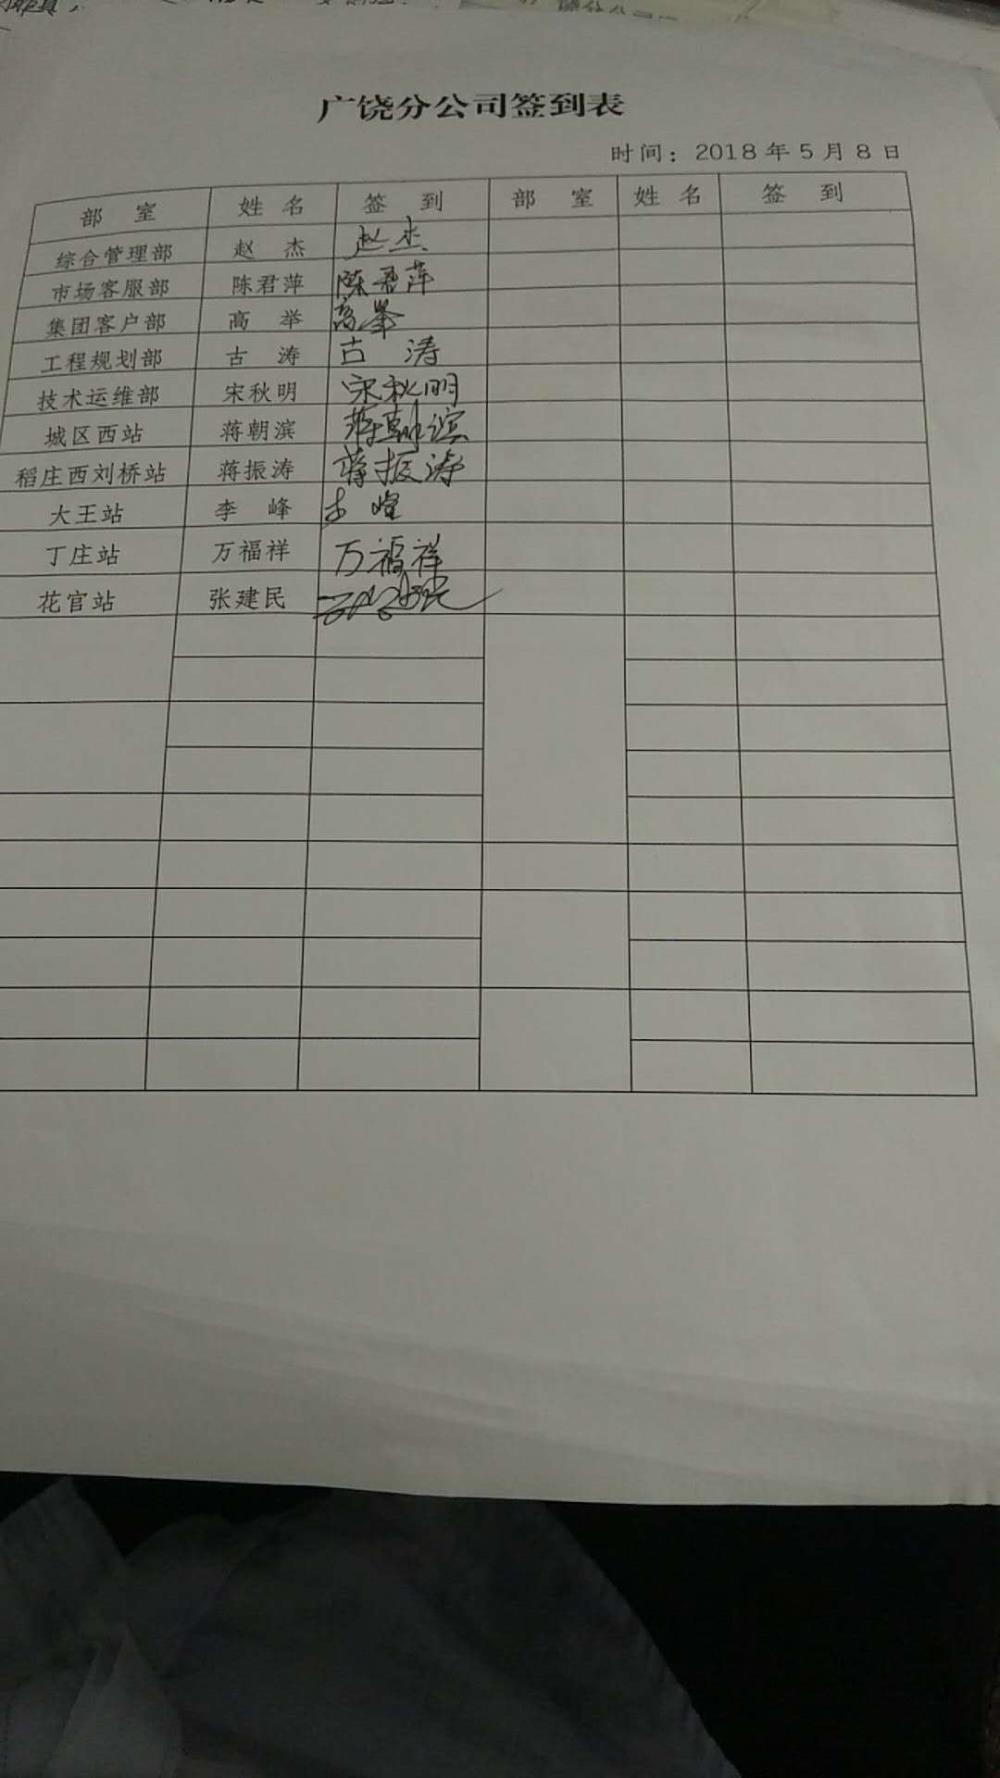 广饶分公司签到表
时间：2018年5月8日
部 室 姓 名 签 到 部 室 姓 名 签 到
综合管理部 赵 杰 赵杰
市场客服部 陈君萍 陈君萍
集团客户部 高 举 高举
工程规划部 古 涛 古涛
技术运维部 宋秋明 宋秋明
城区西站 蒋朝滨 蒋朝滨
稻庄西刘桥站 蒋振涛 蒋振涛
大王站 李 峰 李峰
丁庄站 万福祥 万福祥
花官站 张建民 张建民